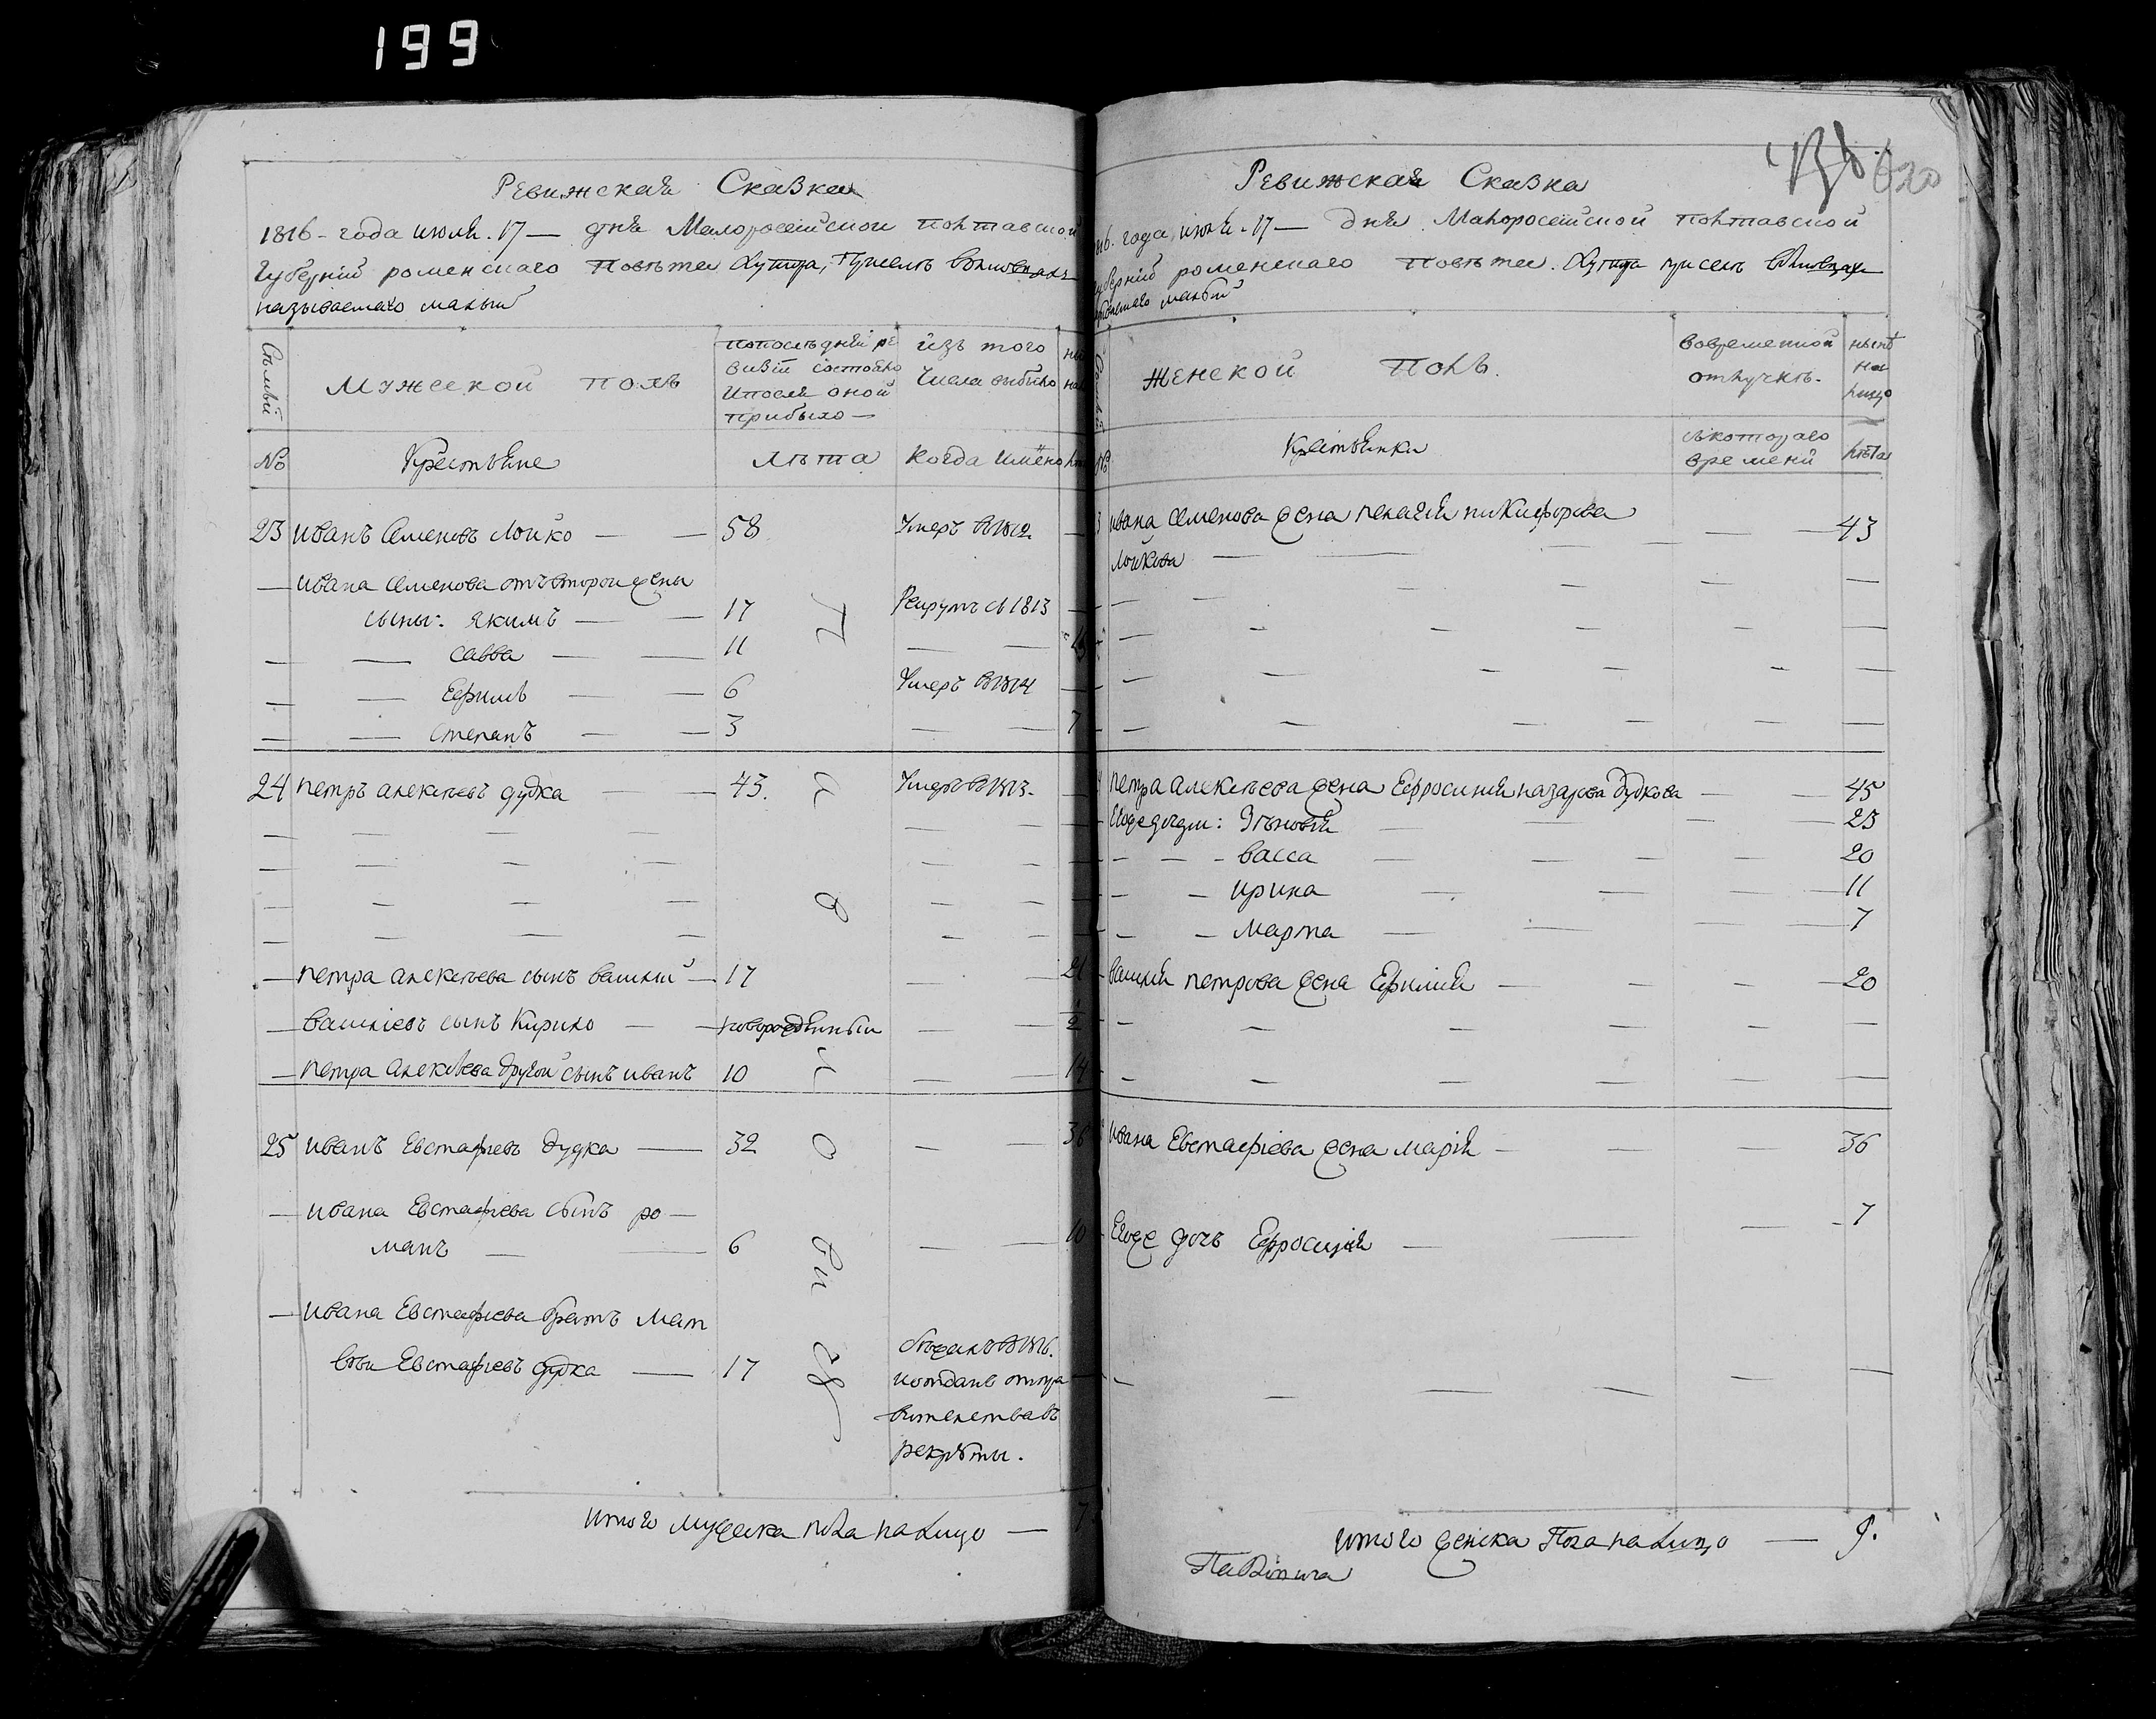 199
Ревижская Сказка
1816 - года июля. 17 — дня Малоросейской Полтавской
Губерній роменского Повѣта Хутора, при селѣ
называемого малый
Сѣмьи
Мужеской полъ
Попослѣдней ре
визіи состояло
Ипосля оной
прибыло —
изъ того
Числа выбыло
№
Крестьяне
Лѣта
Когда имяно
23 иванъ Семеновъ Лойко — — 58 Умеръ в 1812.
— ивана Семенова отъ второй жены
сыны: якимъ — — 17 Рекрутъ съ 1813
— — савва — — 11
— — Ефимъ — — 6 Умеръ в 1814
— — степанъ — — 3 — — 7
24 петръ алексѣевъ дудка — — 43. Умеръ в 1813.
— петра алексѣева сынъ василій — 17 — — 21
— василіевъ сынъ Кирило — — новорожденный — — 1/2
— петра алексѣева другой сынъ иванъ 10 — — 14
25 иванъ Евстафіевъ дудка — 32 — — 36
— ивана Евстафіева сынъ ро —
манъ — — 6 — — 10
— ивана Евстафіева братъ Мат
вѣй Евстафіевъ дудка — 17
в 1816.
иотданъ
рекруты.
итого мужеска пола налицо — 7
Ревижская Сказка
года, июля. 17 — дня Малоросейской Полтавской
роменского Повѣта. Хутора при селѣ
малый
Женской Полъ.
вовременной
отлучкѣ.
нынѣ
на
лицо
Крестьянки
съкоторого
времени
лѣта
ивана семенова жена пелагія никифорова — — 43
Лойкова —
петра алексѣева жена Ефросинія назарова дудкова — — 45
Егоже дочери: Зѣновія — — — 23
— — — васса — — — 20
— — ирина — — — 11
— — марта — — — 7
василія петрова жена Ефимія — — — 20
ивана Евстафіева жена марія — — — 36
Егоже дочь Ефросинія — — — 7
итого женска Пола налицо — 9.